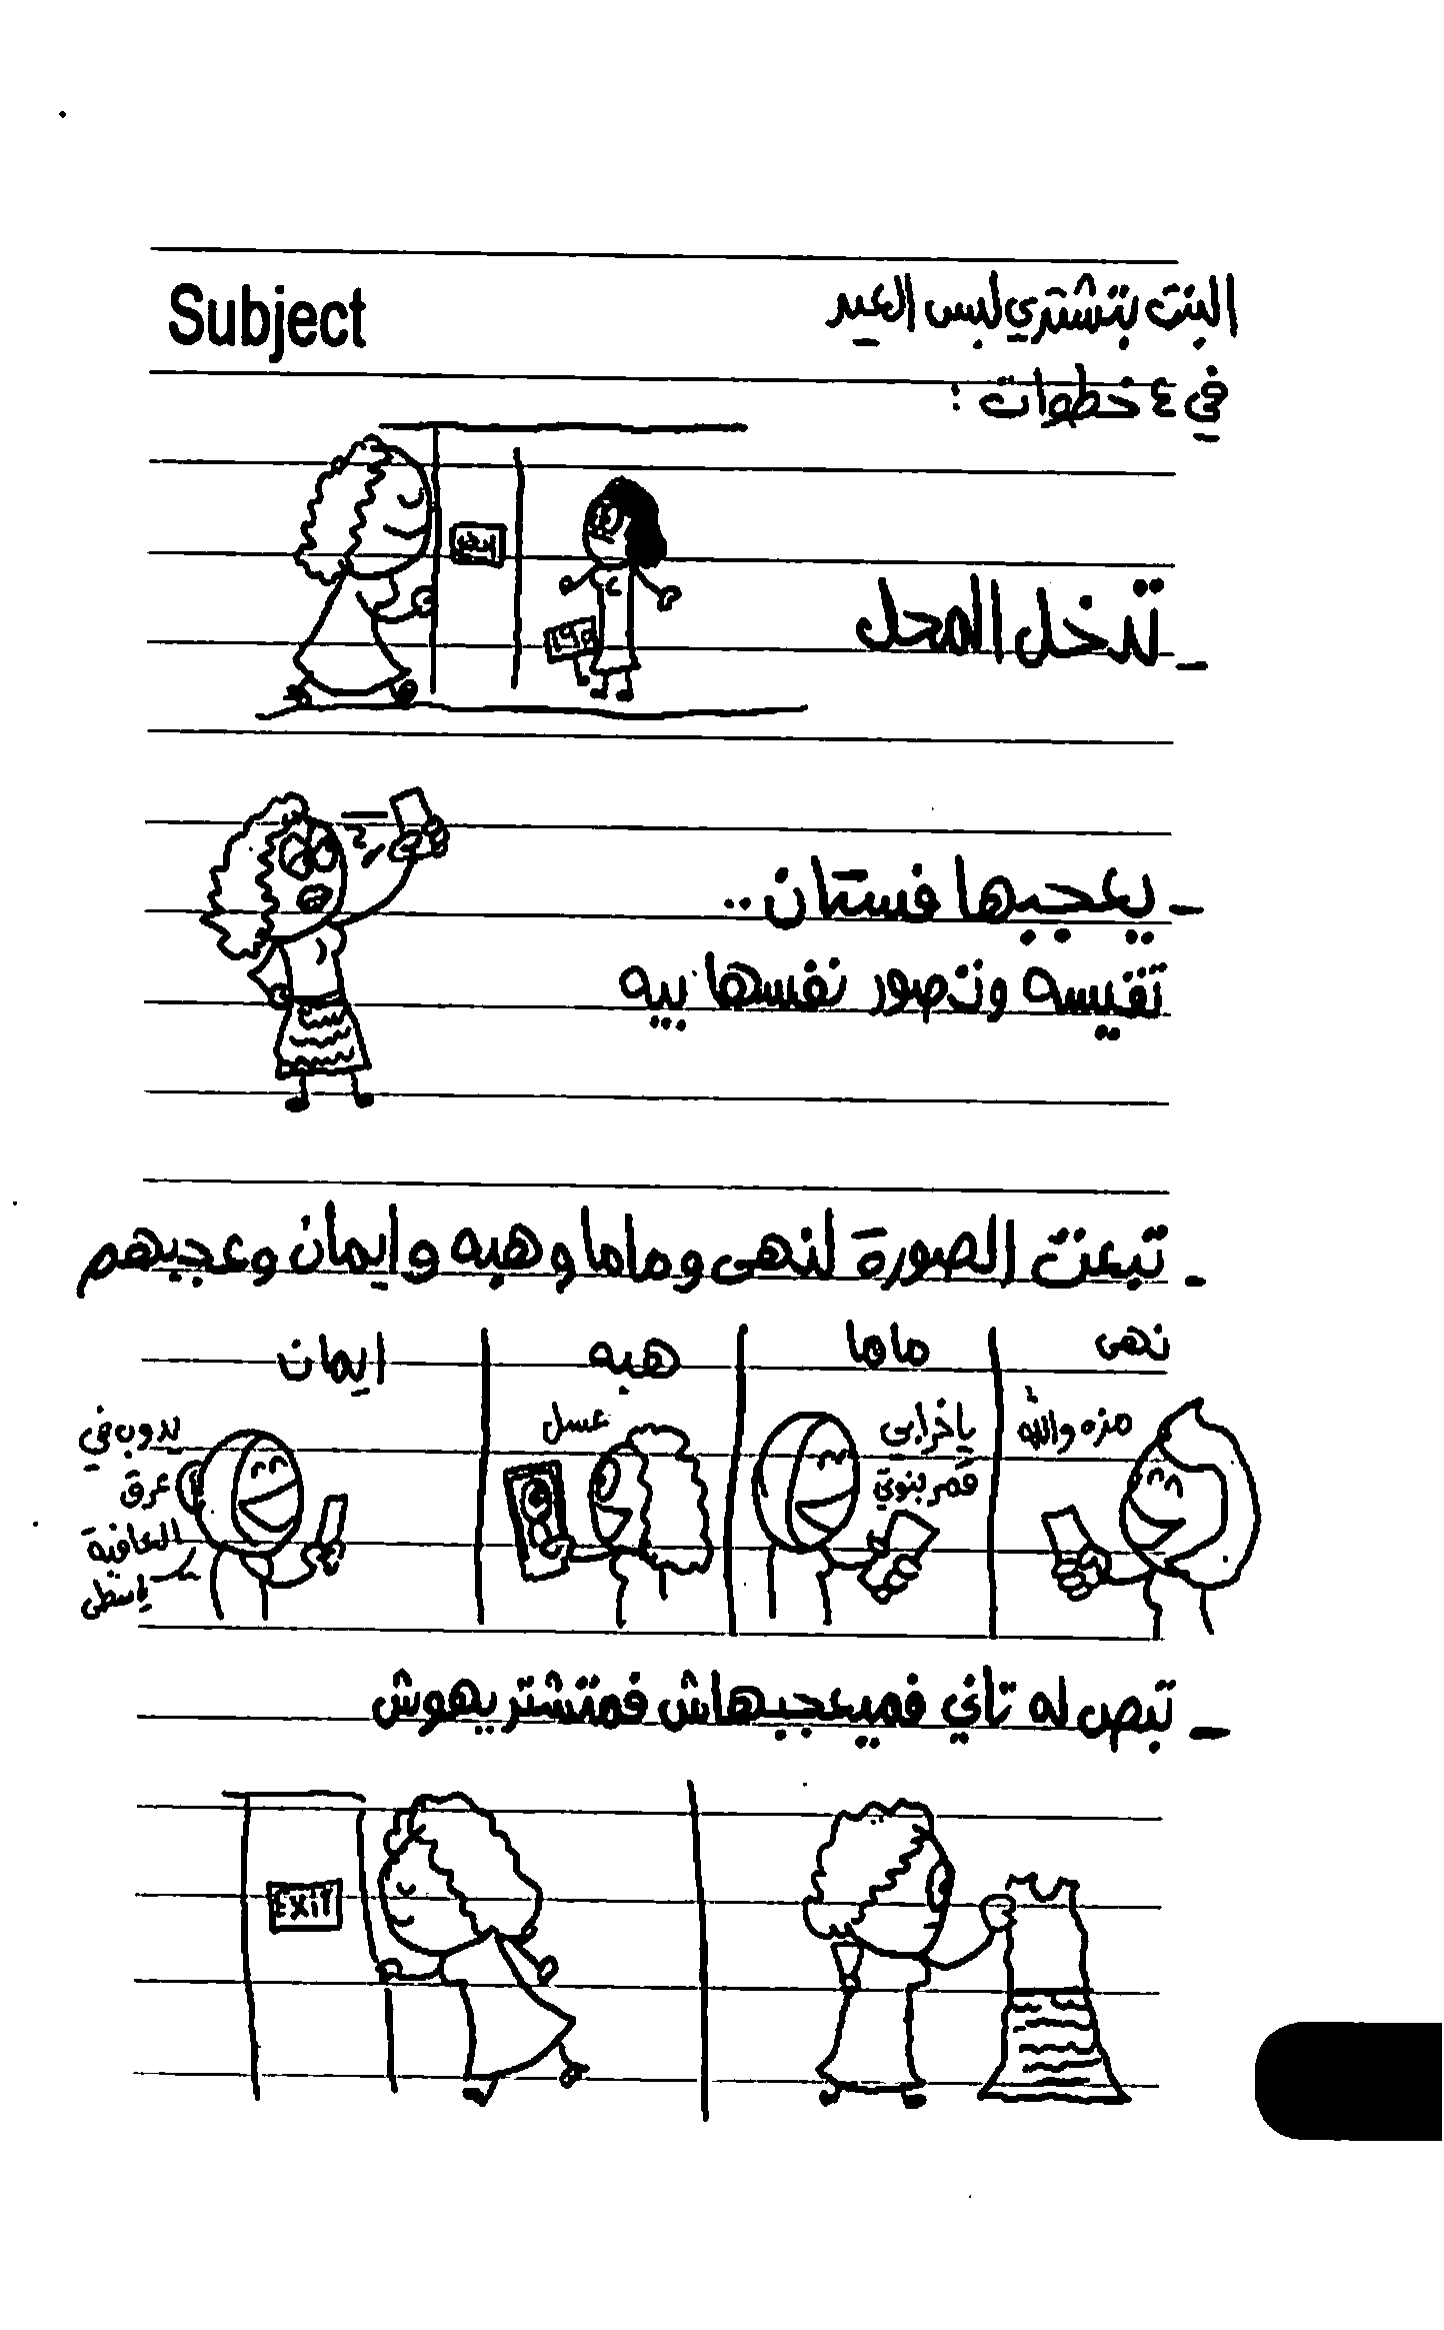 Subject
البنت بتشتري لبس العيد
في ٤ خطوات :
- تدخل المحل
- يعجبها فستان ..
تقيسه وتصور نفسها بيه
- تبعت الصورة لنهى وماما وهبه وايمان وعجبهم
نهى
ماما
هبه
ايمان
مزه والله
ياخرابي
قمر بنوتي
عسل
يدوب في
عرق
العافية
ياسطى
- تبص له تاني فميعجبهاش فمتشتريهوش
EXIT